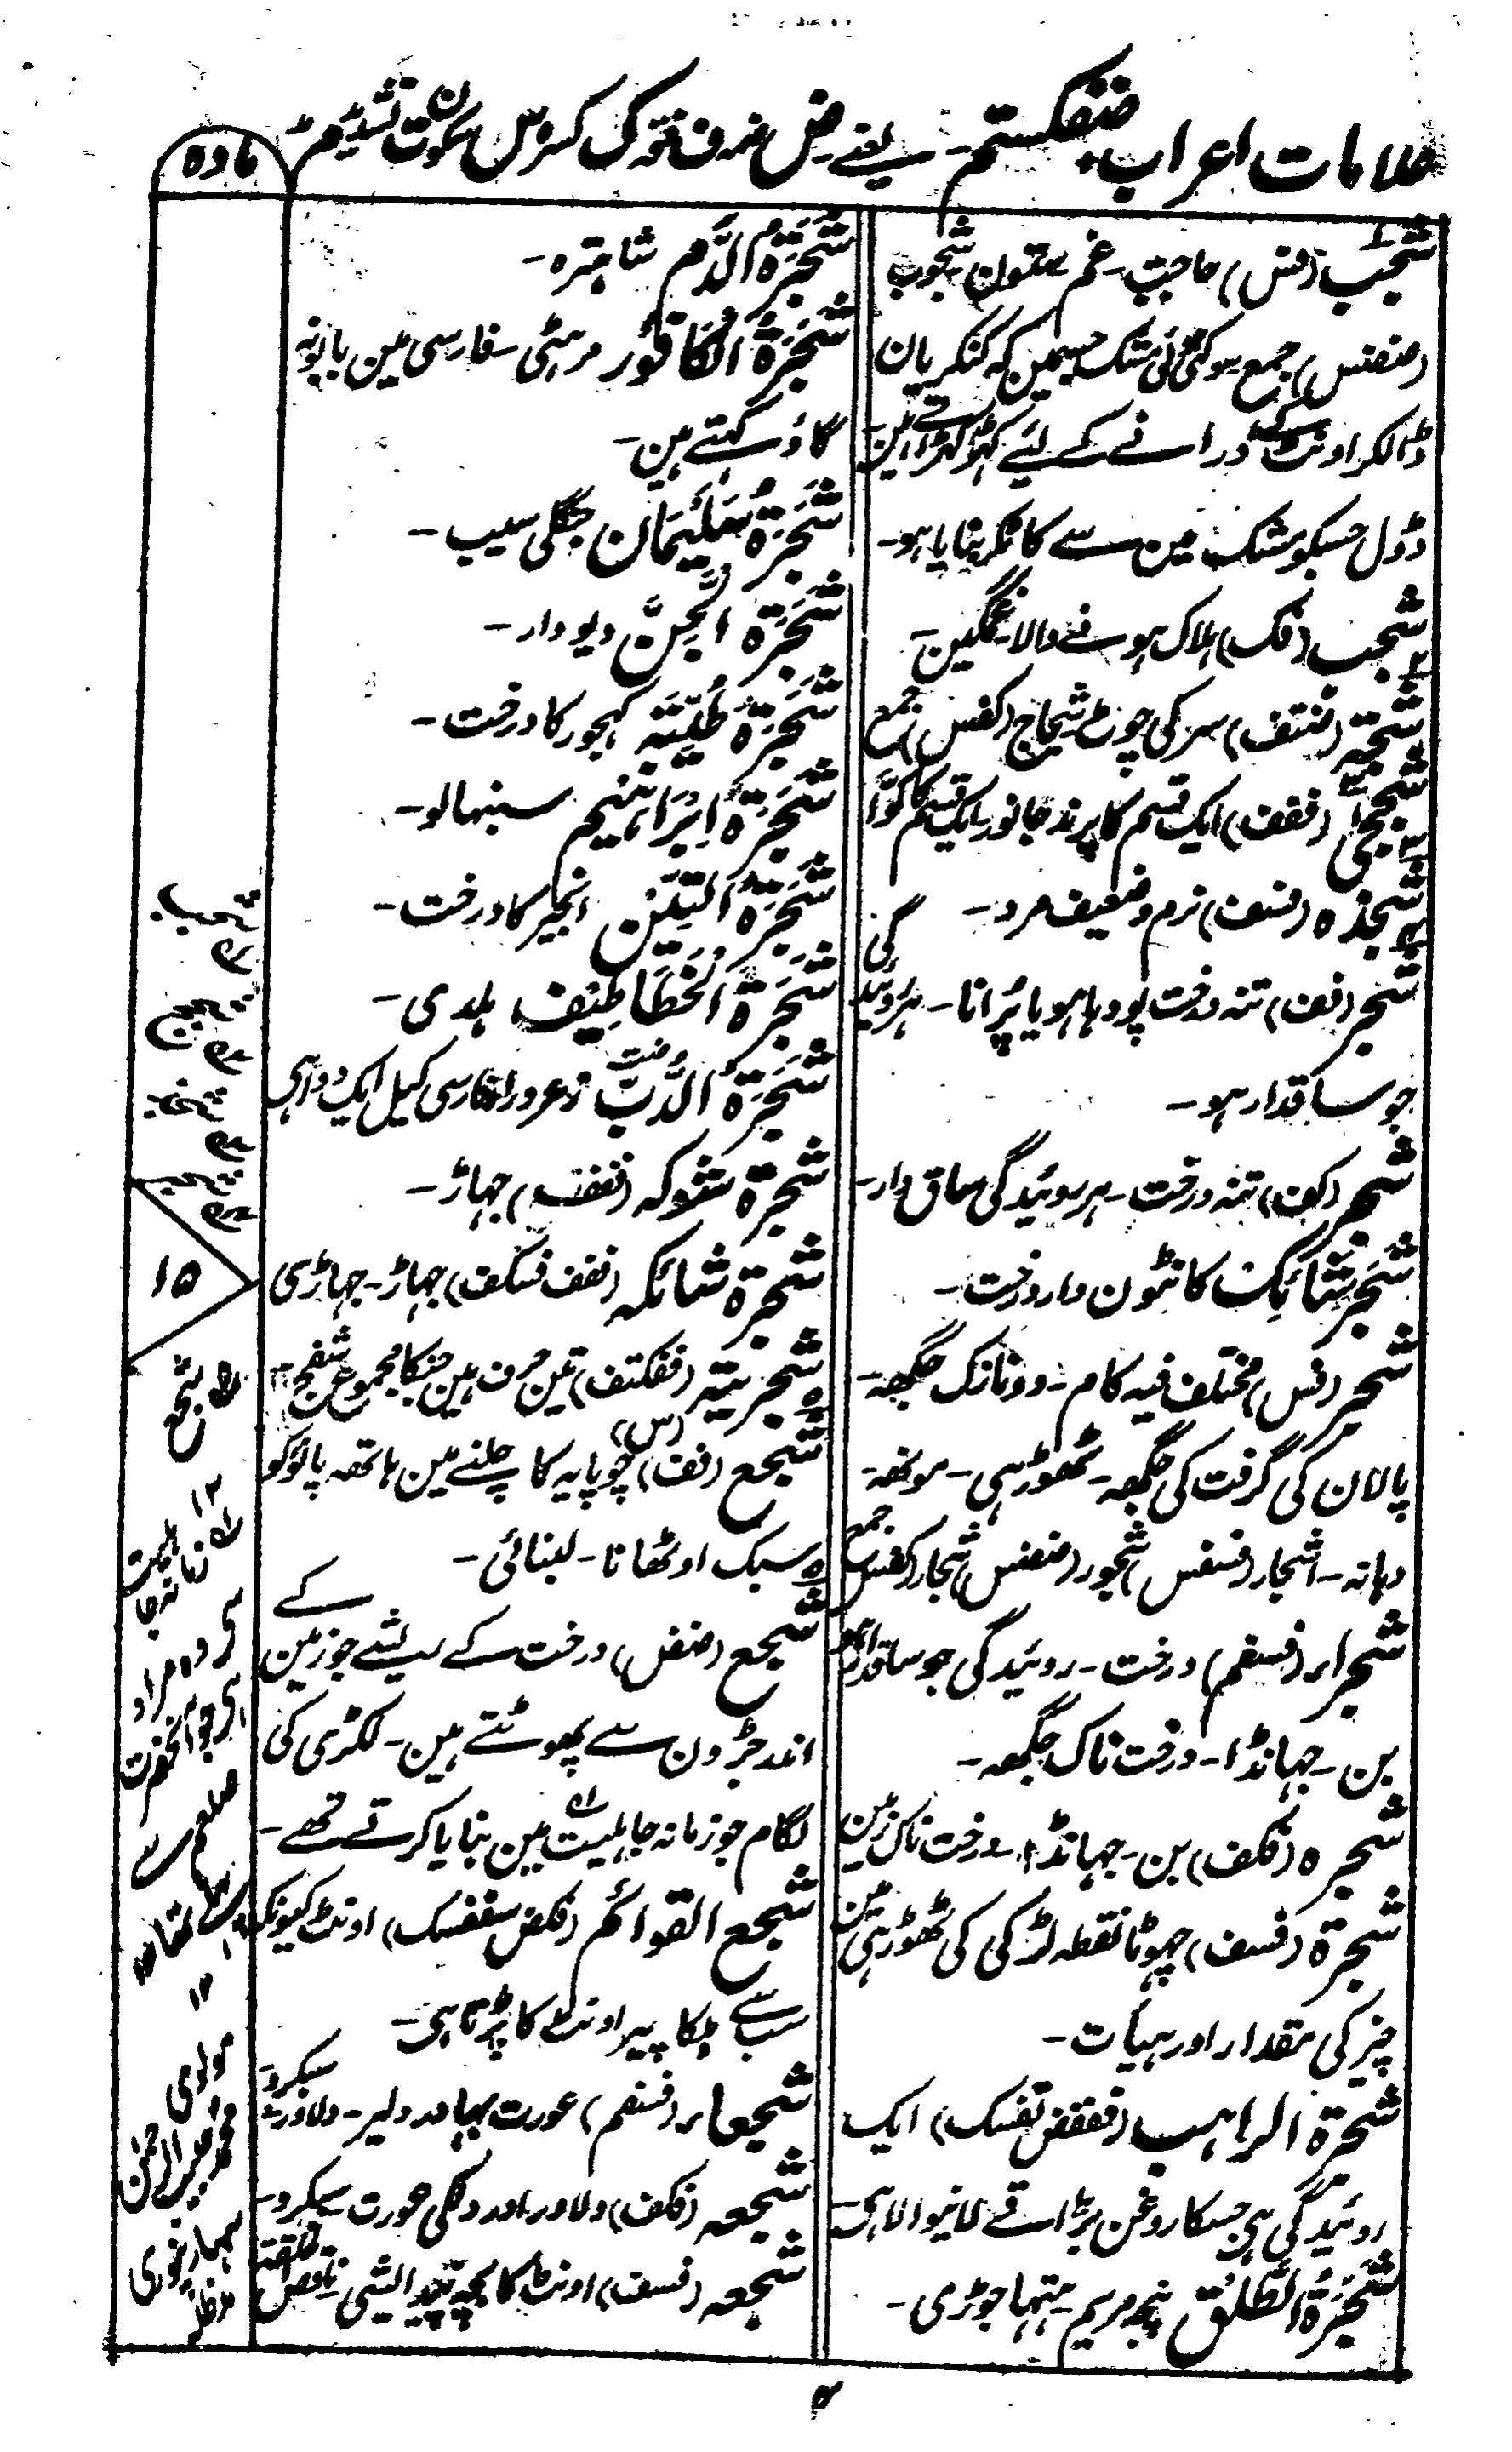 علامات اعراب ضفکستم۔ یعنے ض ضمہ ف فتحہ ک کسرہ س سکون ت تشدید م مد
مادہ
شَجْب (فس) حاجت۔ غم۔ ستون۔ شجوب
(ضضس) جمع سوکھی ہوئی مشک جسمین کہ کنکریان
ڈالکر اونٹ کے ڈرانے کے لئے کھڑکھڑاتے ہین۔
ڈول جسکو مشک مین سے کاٹکر بنایا ہو۔
شجب (فک) ہلاک ہونے والا۔ غمگین۔
شجّہ (فتف) سر کی چوٹ شجاج (کفس) جمع
شججی (ففف) ایک قسم کا پرند جانور۔ ایک قسم کا کوّا
شجذہ (فسف) نرم و ضعیف مرد۔
شجر (فف) تنہ درخت پودہا ہو یا پُرانا۔ ہر روئیدگی
جو ساقدار ہو۔
شجر (کف) تنہ درخت۔ ہر روئیدگی ساق دار۔
شجر شائک کانٹون دار درخت۔
شجر (فس) مختلف فیہ کام۔ دونانک جگہہ۔
پالان کی گرفت کی جگہہ۔ ٹھوڑہی۔ مونھہ۔
دہانہ۔ اشجار (فسفس) شجور (ضضس) شجار (کفس) جمع
شجراء (فسفم) درخت۔ روئیدگی جو ساقدار ہو
بن۔ جہانڈا۔ درخت ناک جگہہ۔
شجرہ (فکف) بن۔ جہانڈا۔ درخت ناک زمین
شجرۃ (فسف) چہوٹا نقطہ لڑکی کی ٹھوڑہی مین
چیز کی مقدار اور ہیأت۔
شجرۃ الراہب (فففض تفسک) ایک
روئیدگی ہی جسکا روغن بڑا قے لانیوالا ہی۔
شَجَرَۃُ الطَّلْق پنجہ مریم۔ ہتہا جوڑی۔
شَجَرَۃُ الدَّم شاہترہ۔
شَجَرَۃُ الْکَافُوْر مرہٹی۔ فارسی مین بابونہ
گاؤ کہتے ہین۔
شَجَرَۃُ سُلَیْمَان جنگلی سیب۔
شَجَرَۃُ الْجِنّ دیودار۔
شَجَرَۃُ طَیِّبَۃ کہجور کا درخت۔
شَجَرَۃُ اِبْرَاہِیْم سنبہالو۔
شَجَرَۃُ التِّیْن انجیر کا درخت۔
شَجَرَۃُ الْخَطَاطِیْف ہلدی۔
شَجَرَۃُ الدُّبّ زعرور فارسی کیل ایک دوا ہی
شجرۃ شوکہ (فففف) جہاڑ۔
شجرۃ شائکہ (ففف فسکف) جہاڑ۔ جہاڑی
شجریّہ (ففکتف) تین حرف ہین جنکا مجموع شفج ہے
شجع (فف) (س) چوپایہ کا چلنے مین ہاتھہ پانؤ کو
سبک اوٹھانا۔ لبنائی۔
شجع (ضفس) درخت کے ریشے جو زمین کے
اندر جڑون سے پھوٹتے ہین۔ لکڑی کی
لگام جو زمانہ جاہلیت مین بنایا کرتے تھے۔
شجع القوائم (فکض سففسک) اونٹ کیونکہ
سب سے ہلکا پیر اونٹ کا پڑتا ہی۔
شجعاء (فسفم) عورت بہادر دلیر۔ دلاور۔ سبکرو
شجعہ (فکف) دلاور اور دلی عورت سبکرو۔
شجعہ (فسف) اونٹ کا بچہ پیدایشی ناقص
شجب
شجج
شجذ
شجر
۱۵
شجع
۱۲
زمانہ جاہلیت
سے مراد
ہی جو آنحضرت
صلعم سے
پہلے تھا
۱۲
مولوی
محمد
سہارنپوری
مدظلہ